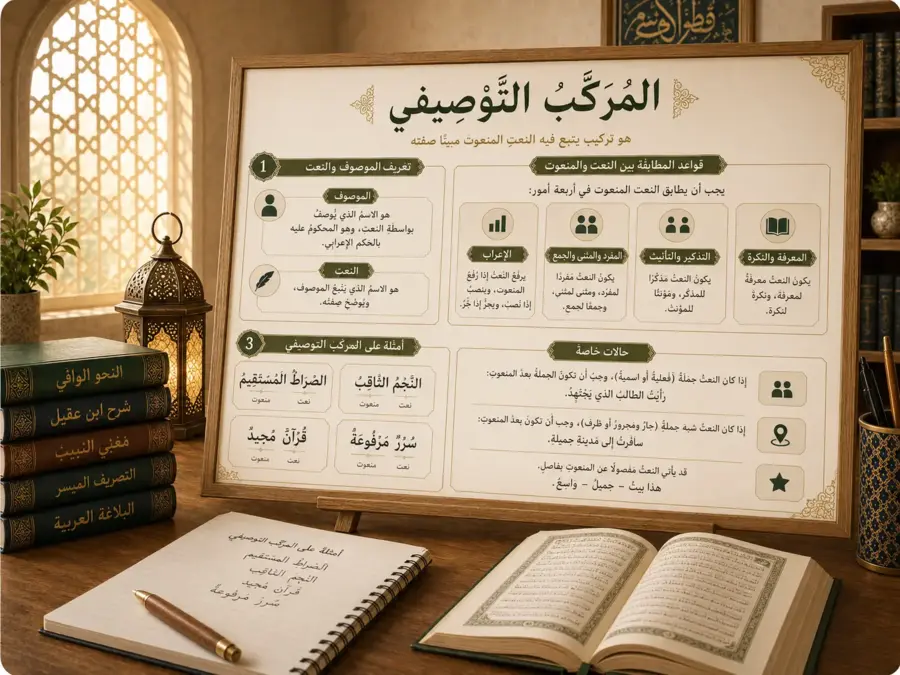 المُرَكَّبُ التَّوْصِيفي
هو تركيب يتبع فيه النعتِ المنعوتَ مبينًا صفته
1 تعريف الموصوف والنعت
الموصوف
هو الاسمُ الذي يُوصفُ
بواسطةِ النعتِ، وهو المحكومُ عليه
بالحكم الإعرابي.
النعت
هو الاسمُ الذي يَتبعُ الموصوف،
ويُوضحُ صِفتَه.
قواعد المطابقة بين النعت والمنعوت
يجب أن يطابق النعت المنعوت في أربعة أمور:
المعرفة والنكرة
يكونُ النعتُ معرفةً
لمعرفة، ونكرة
لنكرة.
التذكير والتأنيث
يكونُ النعتُ مذكرًا
للمذكّر، ومؤنثًا
للمؤنث.
المفرد والمثنى والجمع
يكونُ النعتُ مَفردًا
لمفرد، ومثنى لمثنى،
وجمعًا لجمع.
الإعراب
يرفعُ النَّعتُ إذا رُفعَ
المنعوت، وينصبُ
إذا نُصبَ، ويجرُّ إذا جُرَّ.
3 أمثلة على المركب التوصيفي
النَّجْمُ الثَّاقِبُ
منعوت نعت
الصِّرَاطُ الْمُسْتَقِيمُ
منعوت نعت
سُرُرٌ مَرْفُوعَةٌ
نعت منعوت
قُرْآنٌ مُجيدٌ
نعت منعوت
حالات خاصة
إذا كان النعتُ جملَةً (فعليةً أو اسمية)، وجبَ أن تكونَ الجملةُ بعدَ المنعوتِ:
رأيْتُ الطالبُ الذي يَجْتَهِدُ.
إذا كان النعتُ شبهَ جملةٍ (جارٌ ومجرورٌ أو ظرف)، وجب أن تكونَ بعدَ المنعوتِ:
سافرتُ إلى مدينةٍ جميلةٍ.
قد يأتي النعتُ مَفصولًا عن المنعوتِ بفاصلٍ:
هذا بيتٌ – جميلٌ – واسِعٌ.
النحو الوافي
شرح ابن عقيل
مغني اللبيب
التصريف الميسر
البلاغة العربية
أمثلة على المركب التوصيفي
الصراط المستقيم
النَّجم الثاقب
قرآن مُجيد
سُررٌ مَرفوعةٌ